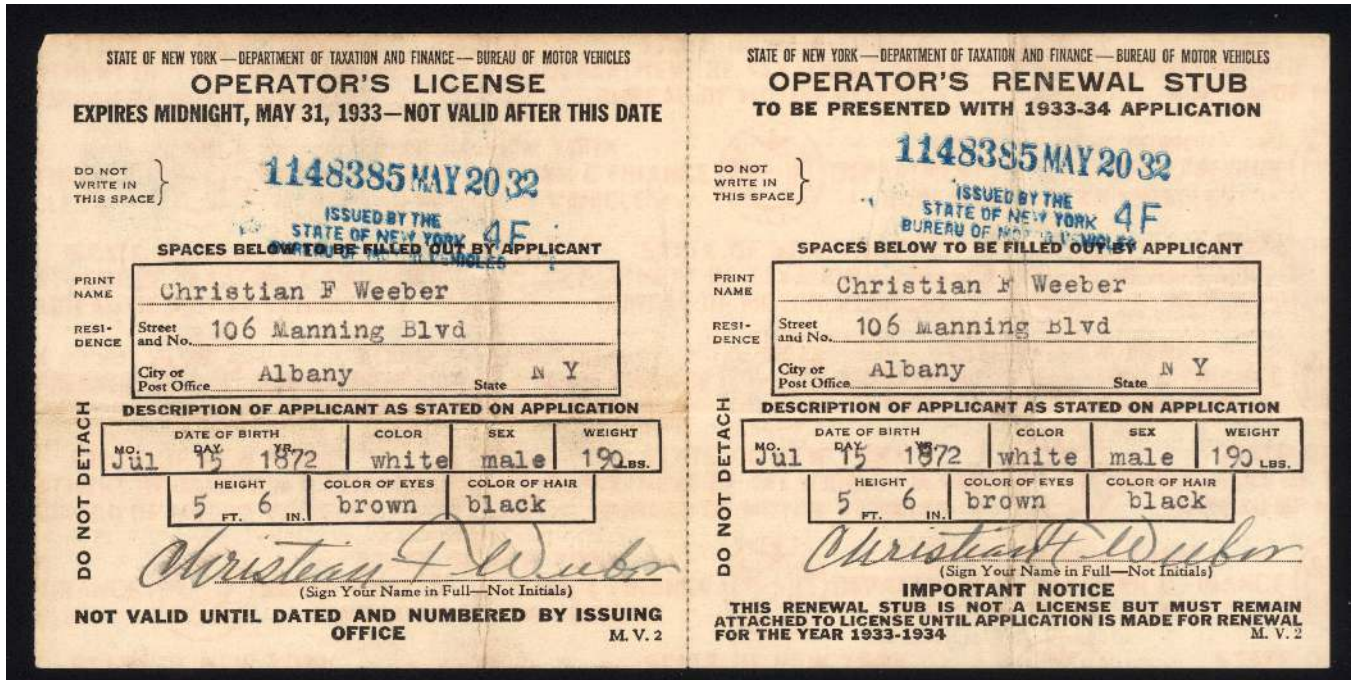 STATE OF NEW YORK — DEPARTMENT OF TAXATION AND FINANCE — BUREAU OF MOTOR VEHICLES
OPERATOR'S LICENSE
EXPIRES MIDNIGHT, MAY 31, 1933—NOT VALID AFTER THIS DATE
DO NOT
WRITE IN
THIS SPACE
1148385 MAY 20 32
ISSUED BY THE
STATE OF NEW YORK 4F
BUREAU OF MOTOR VEHICLES
SPACES BELOW TO BE FILLED OUT BY APPLICANT
PRINT
NAME
Christian F Weeber
RESI-
DENCE
Street
and No. 106 Manning Blvd
City or
Post Office Albany State N Y
DO NOT DETACH
DESCRIPTION OF APPLICANT AS STATED ON APPLICATION
DATE OF BIRTH COLOR SEX WEIGHT
MO. DAY YR.
Jul 15 1872 white male 190 LBS.
HEIGHT COLOR OF EYES COLOR OF HAIR
5 FT. 6 IN. brown black
Christian F Weeber
(Sign Your Name in Full—Not Initials)
NOT VALID UNTIL DATED AND NUMBERED BY ISSUING
OFFICE M. V. 2
STATE OF NEW YORK — DEPARTMENT OF TAXATION AND FINANCE — BUREAU OF MOTOR VEHICLES
OPERATOR'S RENEWAL STUB
TO BE PRESENTED WITH 1933-34 APPLICATION
DO NOT
WRITE IN
THIS SPACE
1148385 MAY 20 32
ISSUED BY THE
STATE OF NEW YORK 4F
BUREAU OF MOTOR VEHICLES
SPACES BELOW TO BE FILLED OUT BY APPLICANT
PRINT
NAME
Christian F Weeber
RESI-
DENCE
Street
and No. 106 Manning Blvd
City or
Post Office Albany State N Y
DO NOT DETACH
DESCRIPTION OF APPLICANT AS STATED ON APPLICATION
DATE OF BIRTH COLOR SEX WEIGHT
MO. DAY YR.
Jul 15 1872 white male 190 LBS.
HEIGHT COLOR OF EYES COLOR OF HAIR
5 FT. 6 IN. brown black
Christian F Weeber
(Sign Your Name in Full—Not Initials)
IMPORTANT NOTICE
THIS RENEWAL STUB IS NOT A LICENSE BUT MUST REMAIN
ATTACHED TO LICENSE UNTIL APPLICATION IS MADE FOR RENEWAL
FOR THE YEAR 1933-1934 M. V. 2